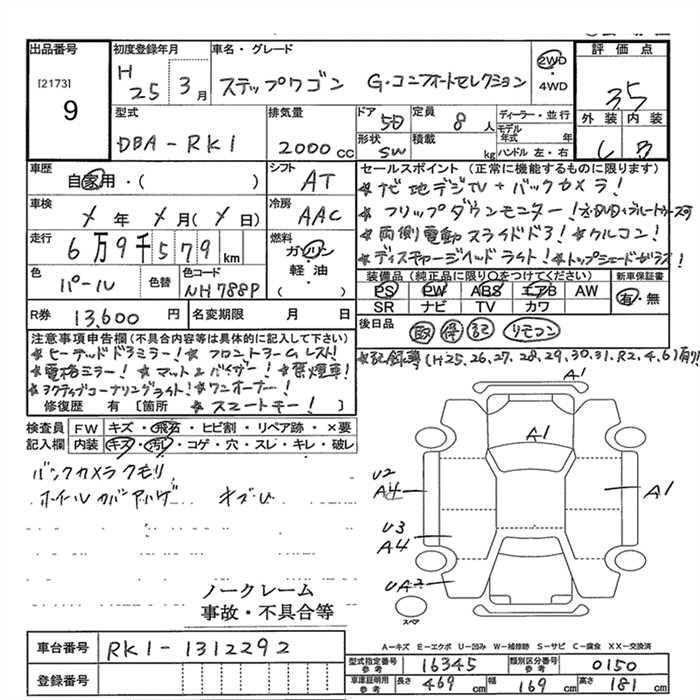 出品番号
[2173]
9
初度登録年月
H 25 3月
車名・グレード
ステップワゴン G・コンフォートセレクション
2WD・4WD
評価点
3.5
外装 内装
型式
DBA-RK1
排気量
2000cc
ドア 5D
定員 8人
形状 SW
積載 kg
ディーラー・並行
モデル年式 年
ハンドル 左・右
車歴
自家用・( )
シフト AT
車検
〆年〆月(〆日)
冷房 AAC
走行
6万9千579km
燃料
ガソリン
軽油
( )
色 パール
色替
色コード NH788P
R券 13,600円
名変期限 月 日
セールスポイント(正常に機能するものに限ります)
★ナビ地デジTV+バックカメラ!
★フリップダウンモニター!
★両側電動スライドドア!★クルコン!
★ディスチャージヘッドライト!★トップシェードガラス!
装備品(純正品に限り○をつけてください)
PS PW ABS エアB AW
SR ナビ TV カワ
新車保証書
有・無
後日品
取 保 記 リモコン
★記録簿(H25,26,27,28,29,30,31,R2,4,6)有り!
注意事項申告欄(不具合内容等は具体的に記入して下さい)
★ヒーテッドドアミラー!★フロントアームレスト!
★電格ミラー!★マット&バイザー!★禁煙車!
★アクティブコーナリングライト!★ワンオーナー!
修復歴 有[箇所 ★スマートキー!]
検査員記入欄
FW キズ・飛石・ヒビ割・リペア跡・×要
内装 キズ・汚レ・コゲ・穴・スレ・キレ・破レ
バックカメラクモリ
ホイルカバーハゲ
A1
A1
U2
A4
A1
U3
A4
UA2
スペア
ノークレーム
事故・不具合等
A-キズ E-エクボ U-凹み W-補修跡 S-サビ C-腐食 XX-交換済
車台番号 RK1-1312292
登録番号
型式指定番号参考 16345
類別区分番号参考 0150
車庫証明用参考 長さ 469cm 幅 169cm 高さ 181cm